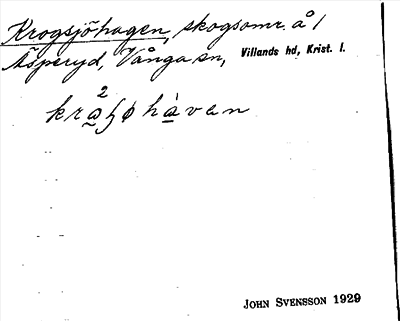 Krogsjöhagen, skogsomr. å /
Äsperyd, Vånga sn, Villands hd, Krist. l.
JOHN SVENSSON 1929